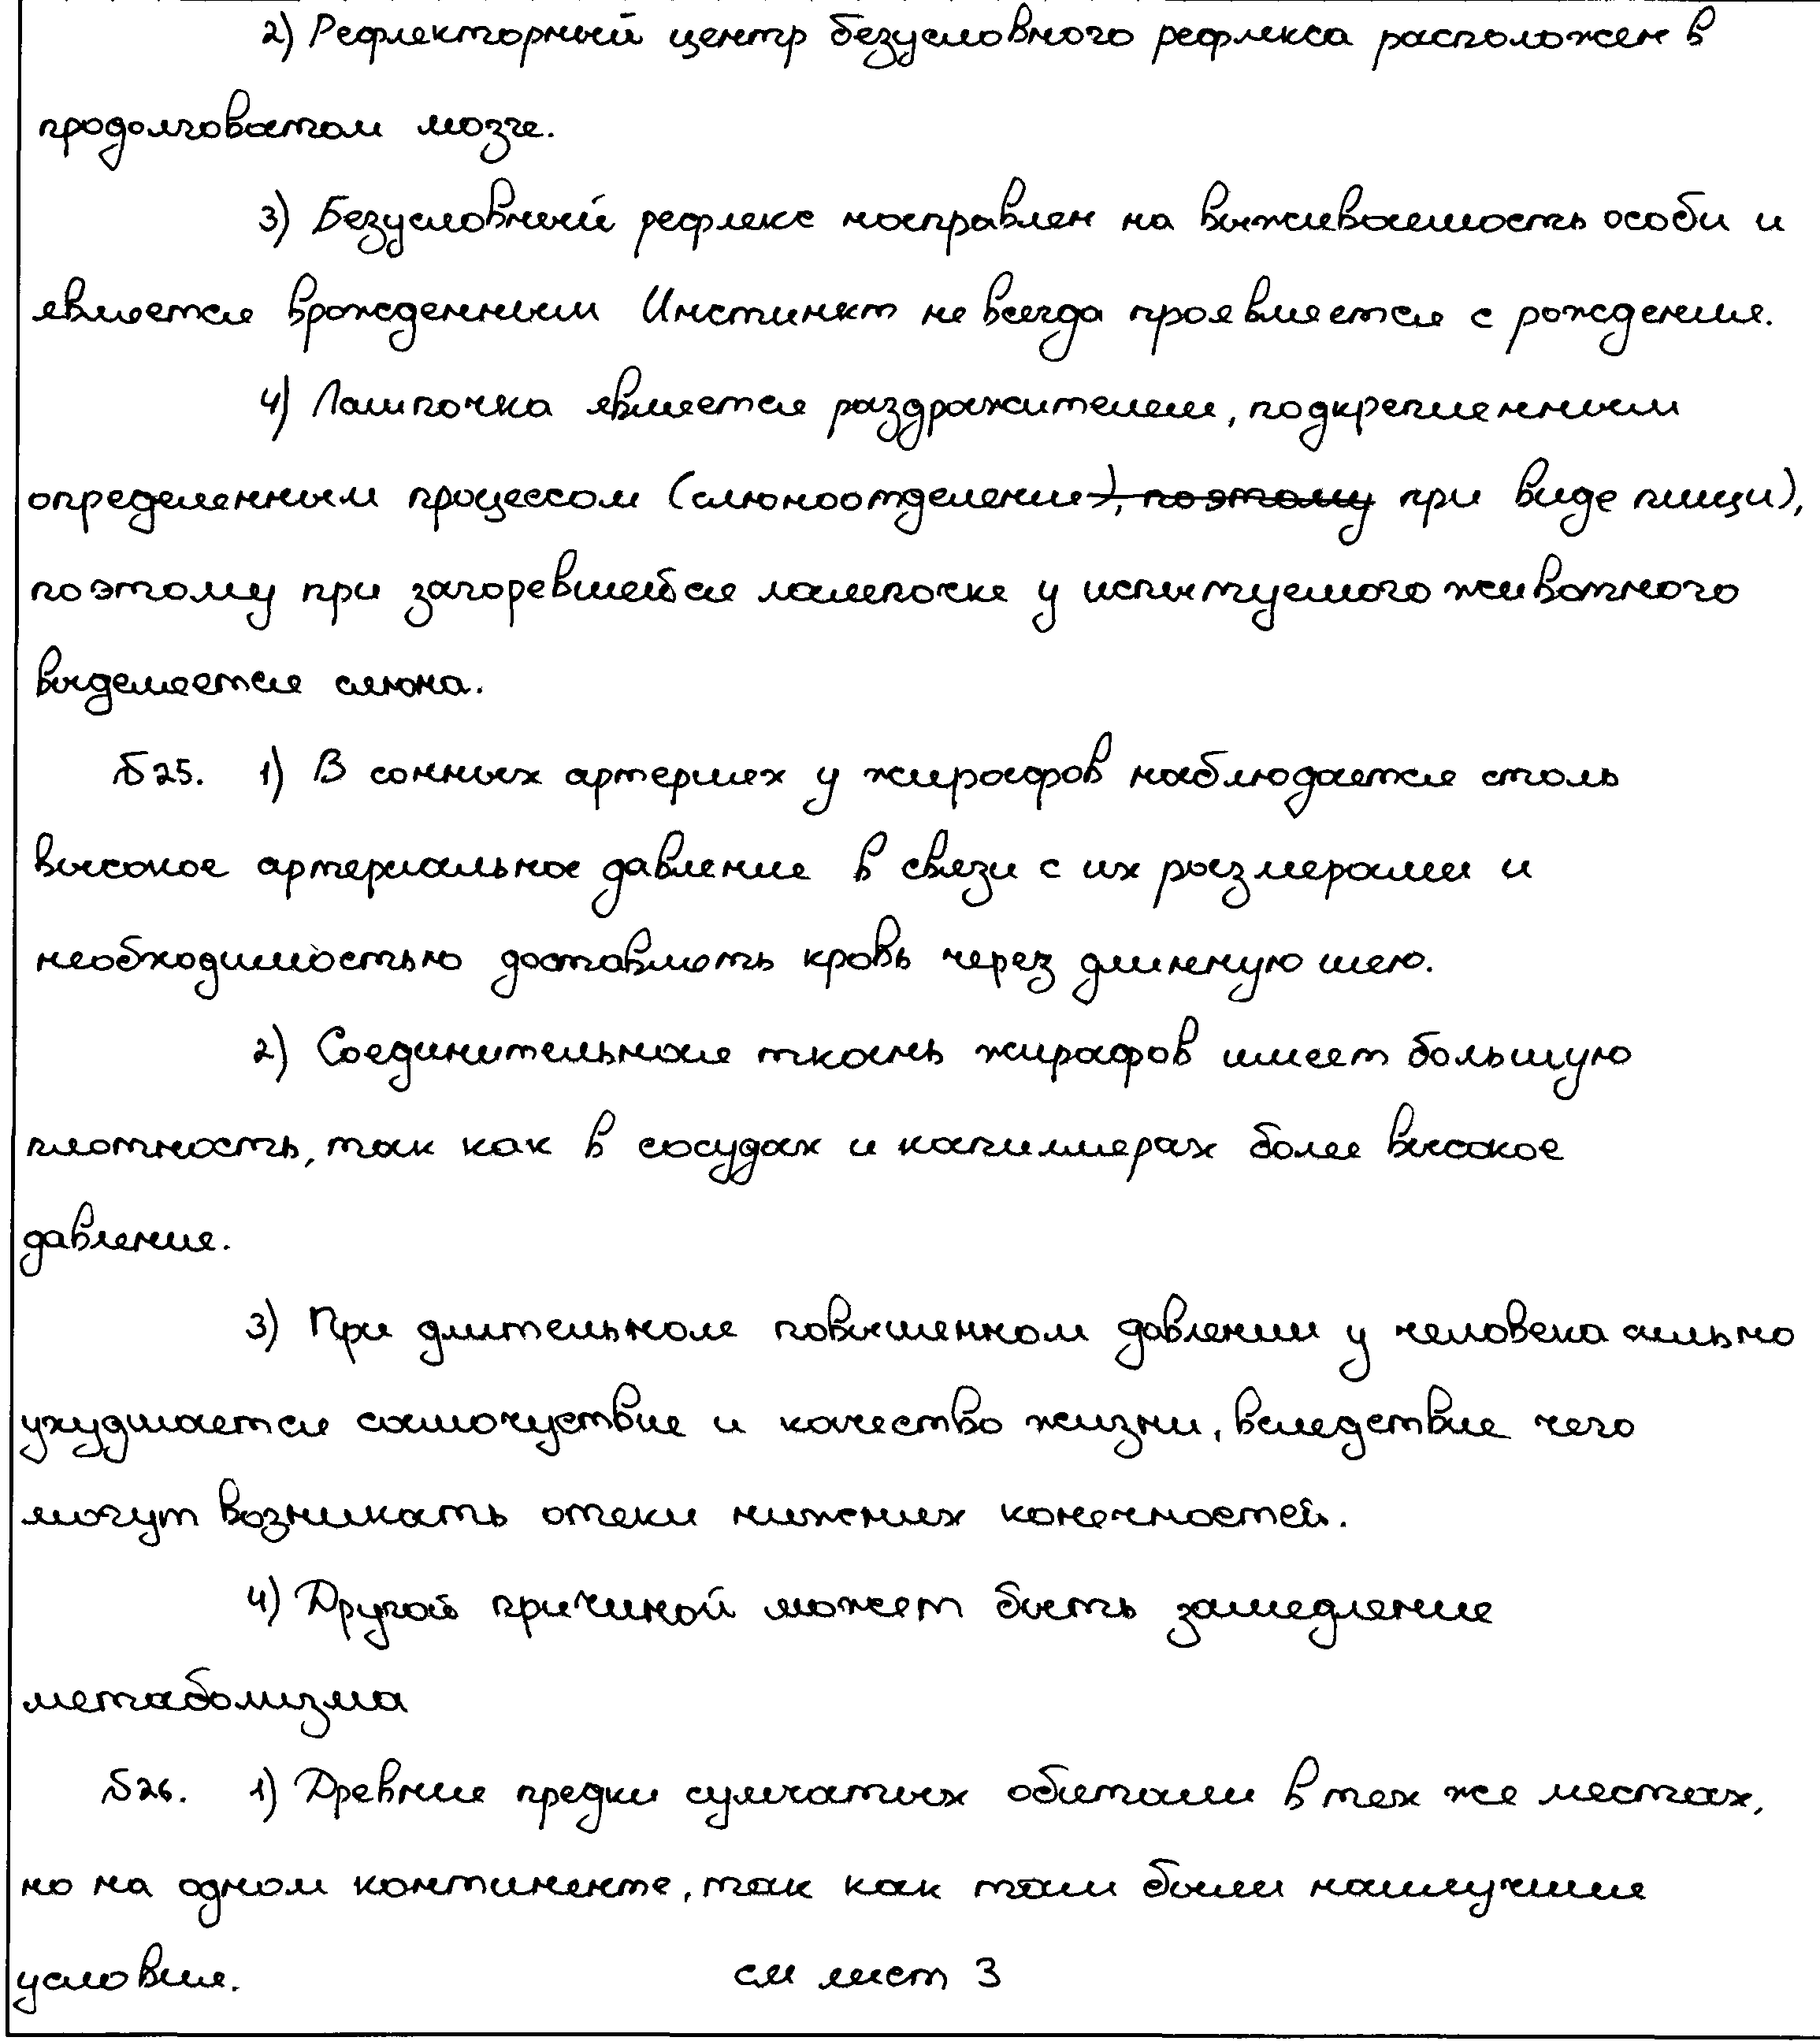 2) Рефлекторный центр безусловного рефлекса расположен в
продолговатом мозге.
3) Безусловный рефлекс направлен на выживаемость особи и
является врожденным Инстинкт не всегда проявляется с рождения.
4) Лампочка является раздражителем, подкрепленным
определенным процессом (слюноотделение), поэтому при виде пищи),
поэтому при загоревшейся лампочке у испытуемого животного
выделяется слюна.
Б25. 1) В сонных артериях у жирафов наблюдается столь
высокое артериальное давление в связи с их размерами и
необходимостью доставлять кровь через длинную шею.
2) Соединительная ткань жирафов имеет большую
плотность, так как в сосудах и капиллярах более высокое
давление.
3) При длительном повышенном давлении у человека сильно
ухудшается самочуствие и качество жизни, вследствие чего
могут возникать отеки нижних конечностей.
4) Другой причиной может быть замедление
метаболизма
Б26. 1) Древние предки сумчатых обитали в тех же местах,
но на одном континенте, так как там были наилучшие
условия. см лист 3